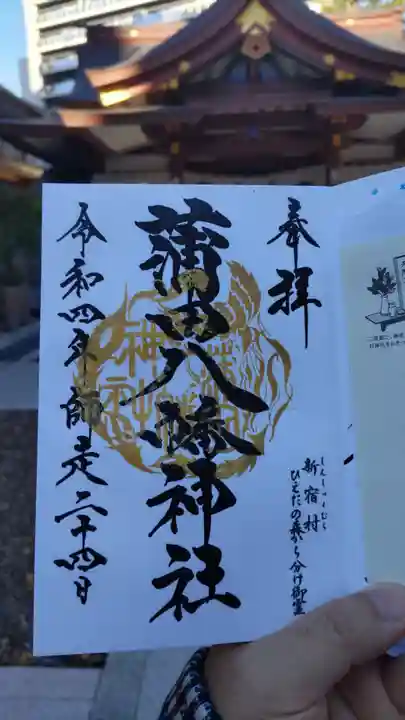 奉拝
蒲田八幡神社
令和四年師走二十四日
しんしゅくむら
新宿村
ひえだの森から分け御霊